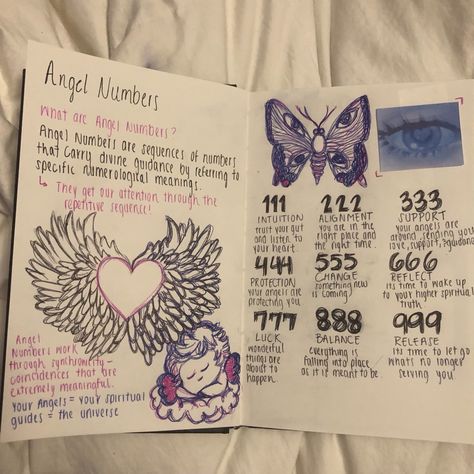 Angel Numbers
What are Angel Numbers?
Angel Numbers are sequences of numbers
that carry divine guidance by referring to
specific numerological meanings.
↳ They get our attention through the
repetitive sequence!
Angel
Numbers work
through synchronicity –
coincidences that are
extremely meaningful.
Your Angels = your spiritual
guides = the universe
111
INTUITION
trust your gut
and listen to
your heart.
222
ALIGNMENT
you are in the
right place and
the right time.
333
SUPPORT
your angels are
around, sending you
love, support, & guidance
444
PROTECTION
your angels are
protecting you
555
CHANGE
something new
is coming!
666
REFLECT
its time to wake up
to your higher spiritual
truth
777
LUCK
wonderful
things are
about to
happen.
888
BALANCE
everything is
falling into place
as it is meant to be
999
RELEASE
its time to let go
whats no longer
serving you